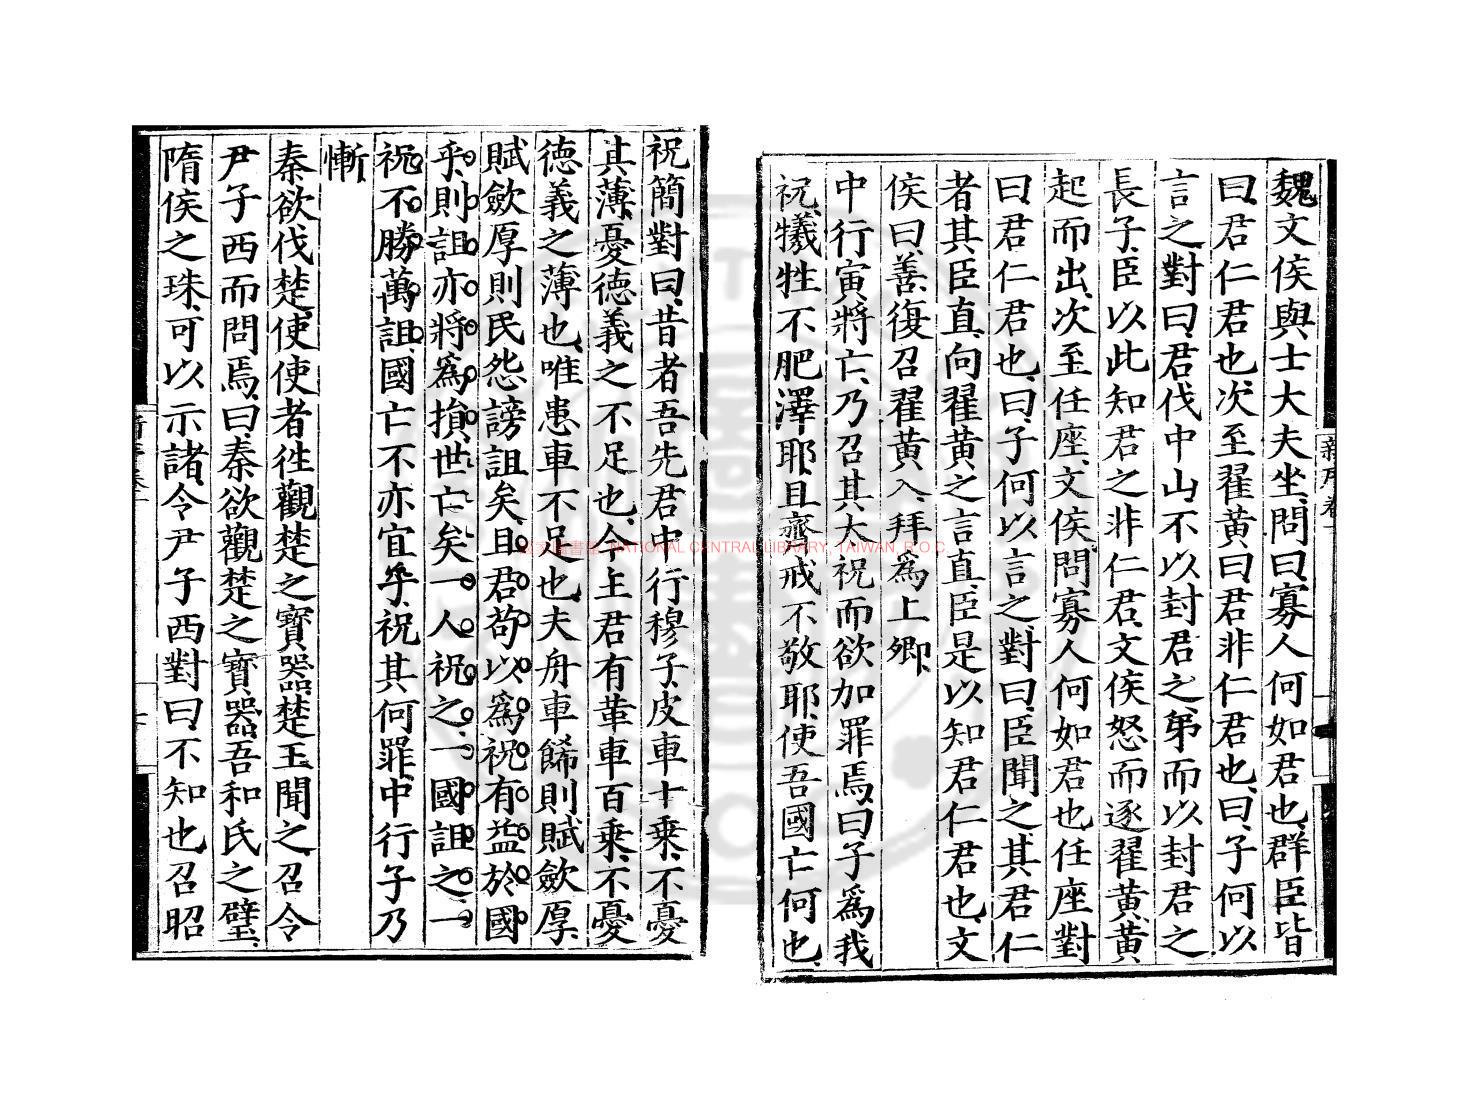 魏文侯與士大夫坐問曰寡人何如君也群臣皆
曰君仁君也次至翟黃曰君非仁君也曰子何以
言之對曰君伐中山不以封君之弟而以封君之
長子臣以此知君之非仁君文侯怒而逐翟黃黃
起而出次至任座文侯問寡人何如君也任座對
曰君仁君也曰子何以言之對曰臣聞之其君仁
者其臣直向翟黃之言直臣是以知君仁君也文
侯曰善復召翟黃入拜為上卿
中行寅將亡乃召其太祝而欲加罪焉曰子為我
祝犧牲不肥澤耶且齊戒不敬耶使吾國亡何也
新序卷一
祝簡對曰昔者吾先君中行穆子皮車十乘不憂
其薄憂德義之不足也今主君有革車百乘不憂
德義之薄也唯患車不足也夫舟車餙則賦斂厚
賦斂厚則民怨謗詛矣且君苟以為祝有益於國
乎則詛亦將為損世亡矣一人祝之一國詛之一
祝不勝萬詛國亡不亦宜乎祝其何罪中行子乃
慚
秦欲伐楚使使者徃觀楚之寶器楚王聞之召令
尹子西而問焉曰秦欲觀楚之寶器吾和氏之璧
隋侯之珠可以示諸令尹子西對曰不知也召昭
國家圖書館 NATIONAL CENTRAL LIBRARY, TAIWAN, R.O.C.